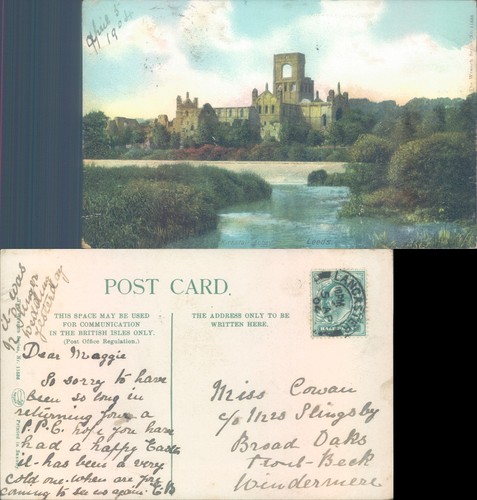 April 5
190
Leeds
POST CARD.
THIS SPACE MAY BE USED
FOR COMMUNICATION
IN THE BRITISH ISLES ONLY.
(Post Office Regulation.)
THE ADDRESS ONLY TO BE
WRITTEN HERE.
LANCASTER
5 AP
HALF
it was
yesterday
Dear Maggie
So sorry to have
been so long in
returning your a
P.P.C. hope you have
had a happy Easter
it has been a very
cold one. when are you
coming to see us again
Miss Cowan
c/o Mrs Slingsby
Broad Oaks
Trout-Beck
Windermere
Printed in